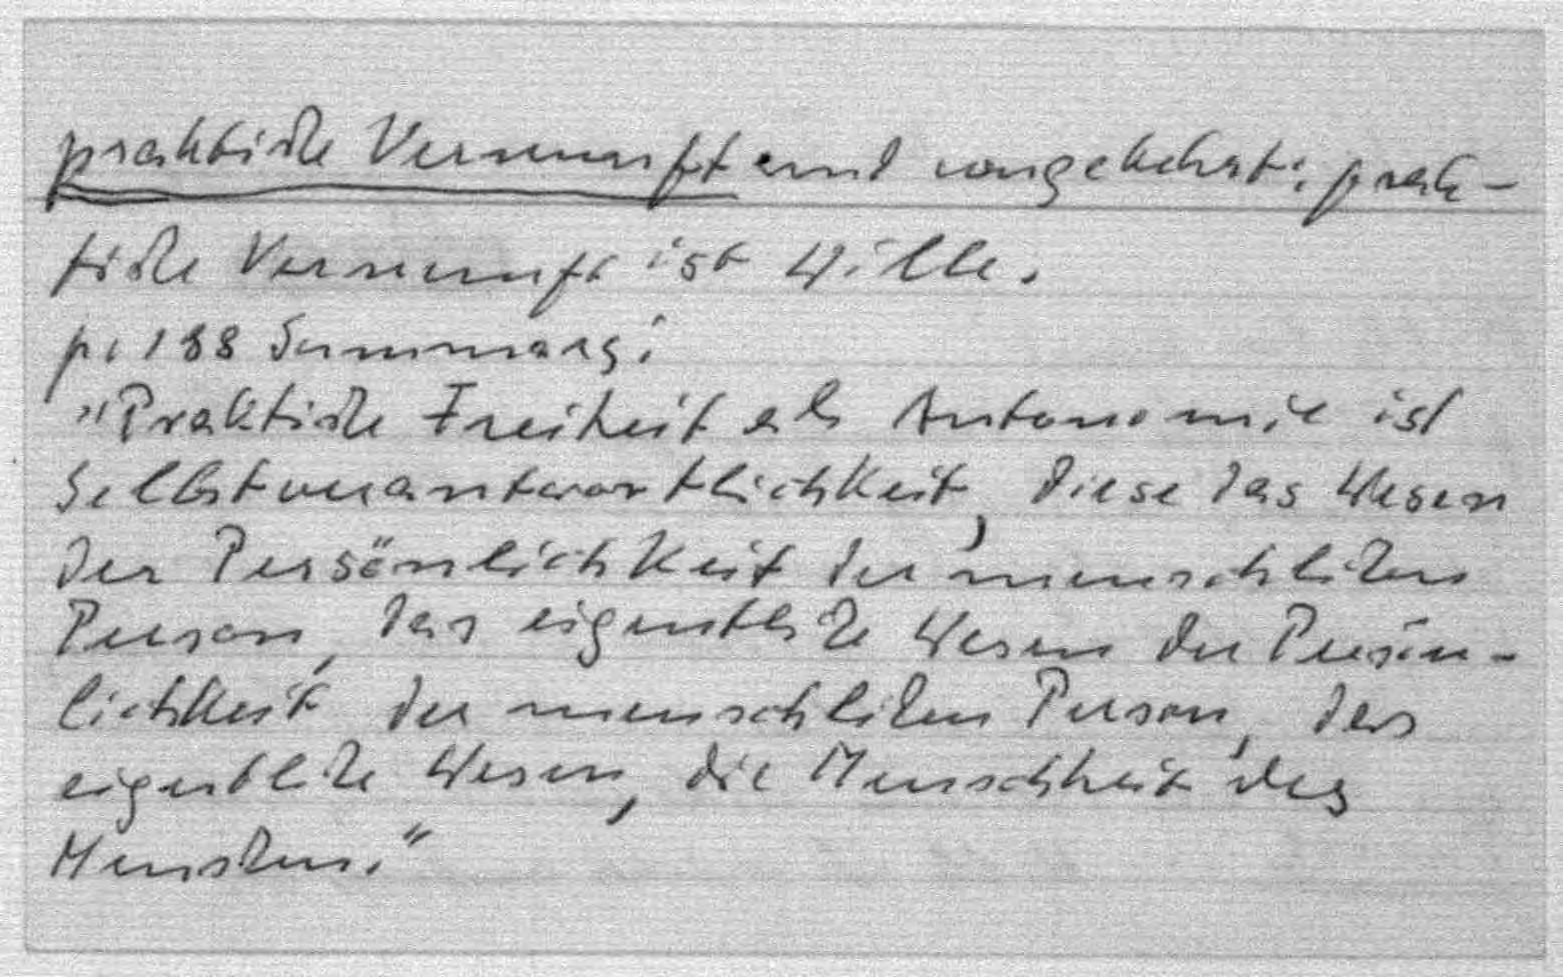 praktische Vernunft und umgekehrt: prak-
tische Vernunft ist Wille.
p. 188 Summary:
"Praktische Freiheit als Autonomie ist
Selbstverantwortlichkeit, diese das Wesen
der Persönlichkeit der menschlichen
Person, das eigentliche Wesen der Persön-
lichkeit der menschlichen Person, das
eigentliche Wesen, die Menschheit des
Menschen."